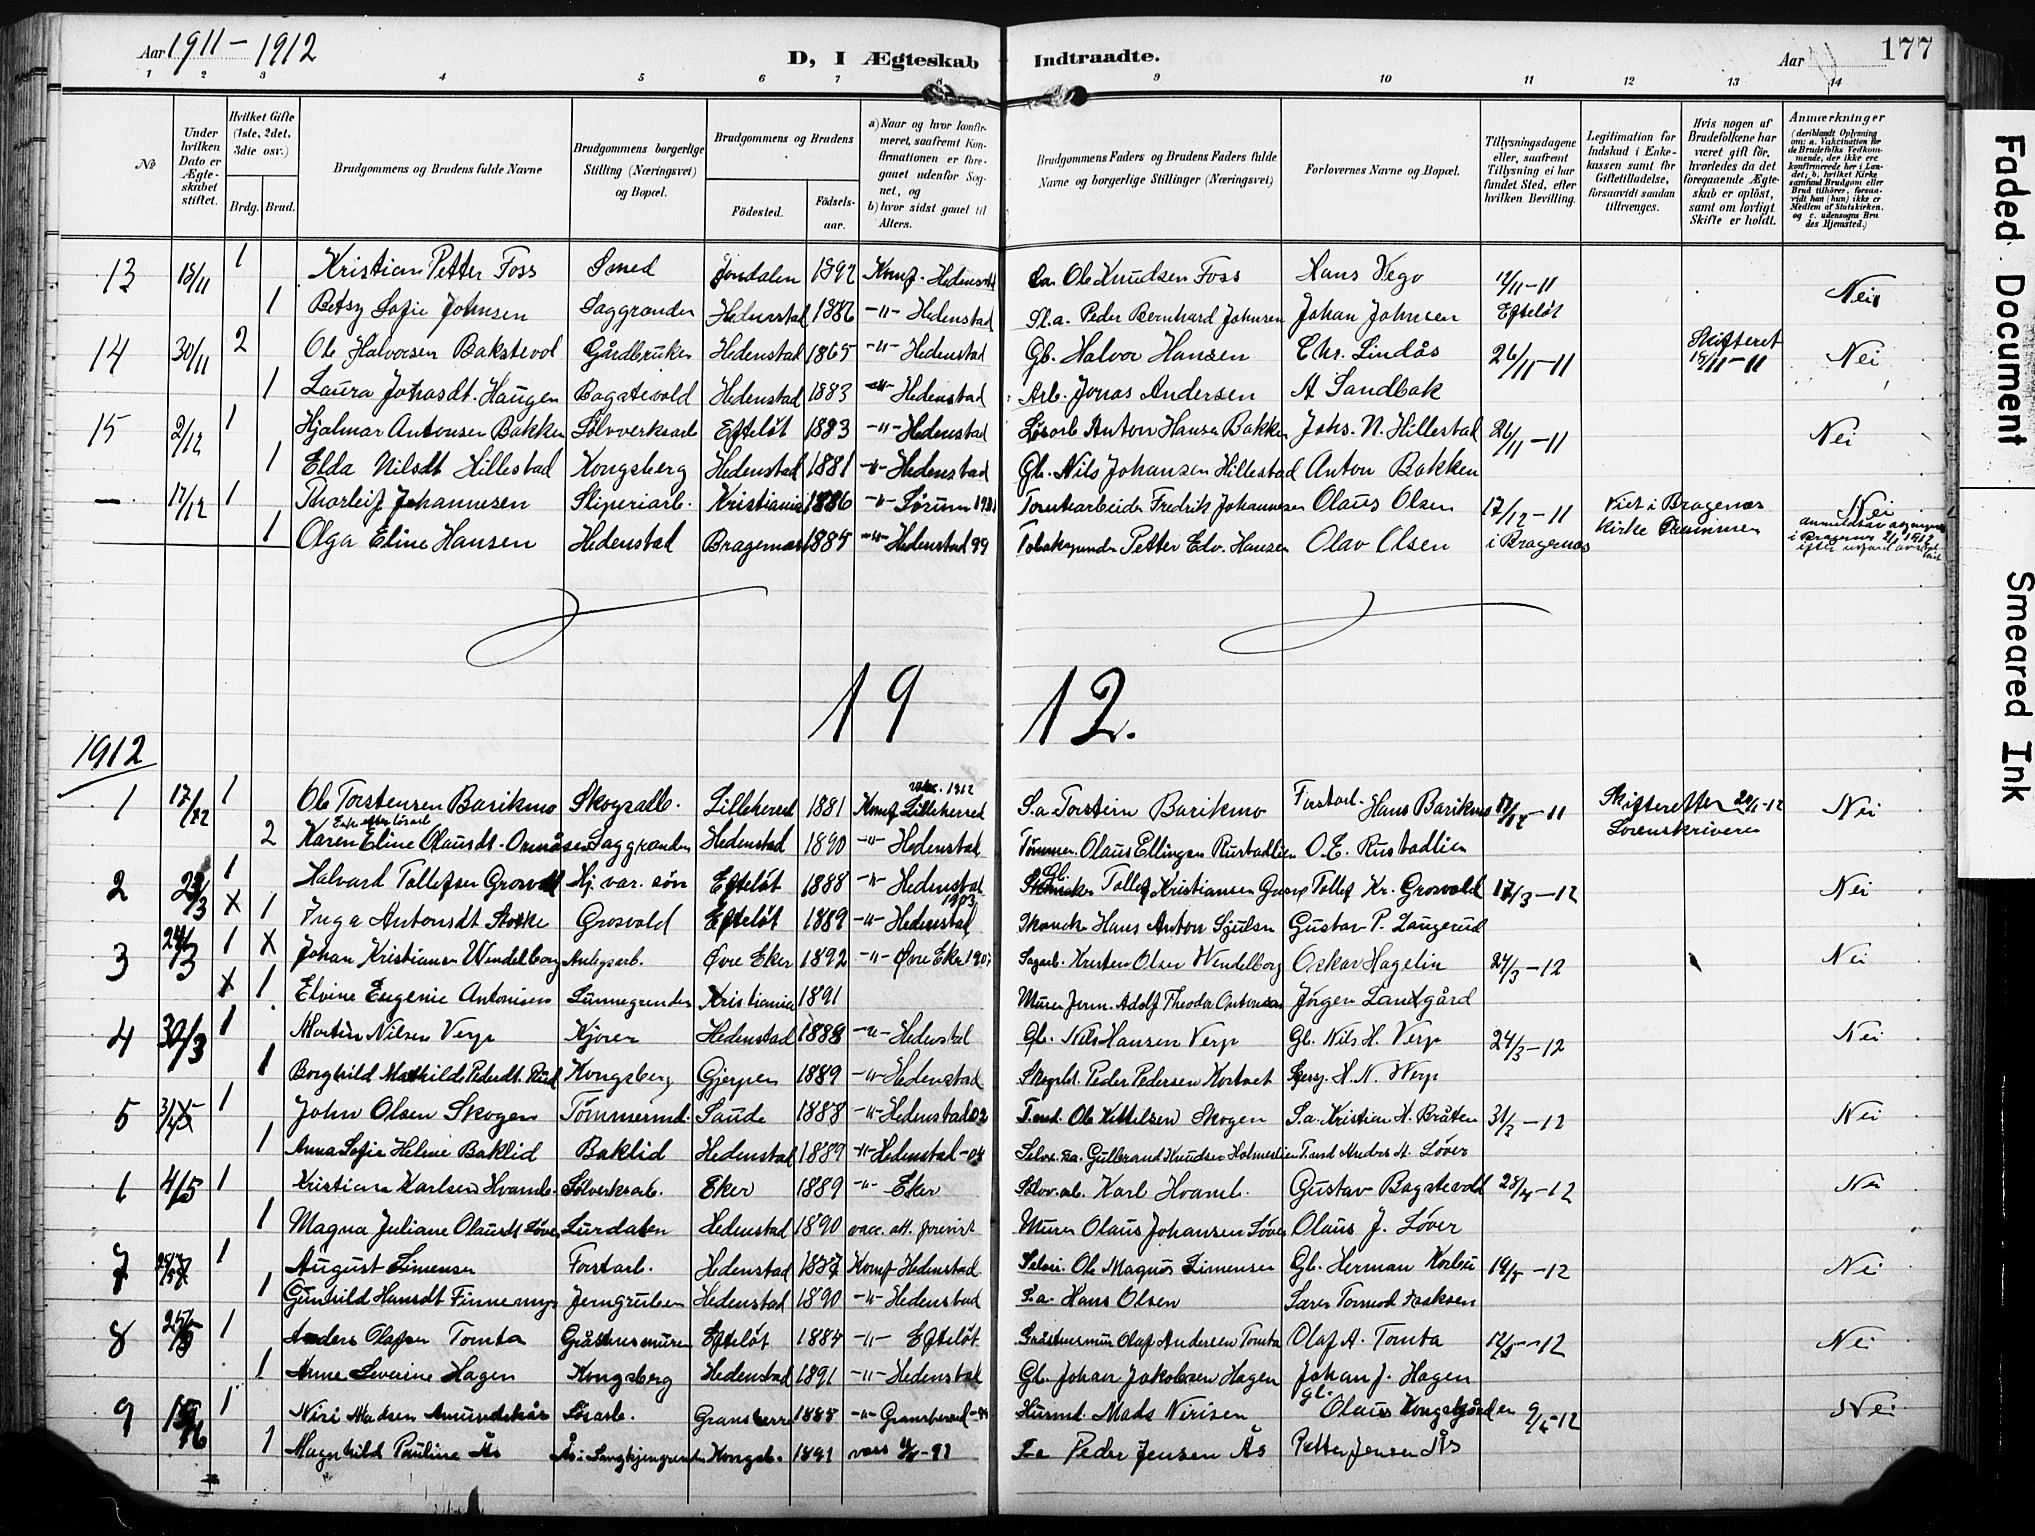 Aar 1911 - 1912 D, I Ægteskab Indtraadte. Aar 177
1 2 3 4 5 6 7 8 9 10 11 12 13 14
№
Under hvilken Dato er Ægteskabet stiftet.
Hvilket Gifte (1ste, 2det, 3die osv.)
Brdg. Brud.
Brudgommens og Brudens fulde Navne
Brudgommens borgerlige Stilling (Næringsvei) og Bopæl.
Brudgommens og Brudens
Fødested. Fødselsaar.
a) Naar og hvor konfirmeret, saafremt Konfirmationen er foregaaet udenfor Sognet, og b) hvor sidst gaaet til Alters.
Brudgommens Faders og Brudens Faders fulde Navne og borgerlige Stillinger (Næringsvei)
Forlovernes Navne og Bopæl.
Tillysningsdagene eller, saafremt Tillysning ei har fundet Sted, efter hvilken Bevilling.
Legitimation for Indskud i Enkekassen samt for Giftetilladelse, forsaavidt saadan tiltrænges.
Hvis nogen af Brudefolkene har været gift før, hvorledes da det foregaaende Ægteskab er opløst, samt om lovligt Skifte er holdt.
Anmærkninger (deriblandt Oplysning om: a. Vakcination for de Brudefolks Vedkommende, der ikke ere konfirmerede her i Landet; b. hvilket Kirkesamfund Brudgom eller Brud tilhører, forsaavidt han (hun) ikke er Medlem af Statskirken, og c. udensogns Brudes Hjemsted.)
13 18/11 1 Kristian Petter Foss Smed Jondalen 1892 Konf. Hedenstad Ole Knudsen Foss Hans Vego 12/11-11 Nei
1 Betsy Sofie Johnsen Saggrenden Hedenstad 1886 -"- Hedenstad S.a. Peder Bernhard Johnsen Johan Johnsen Efteløt
14 30/11 2 Ole Halvorsen Bakstevol Gårdbruker Hedenstad 1865 -"- Hedenstad Gb. Halvor Hansen Chr. Lindås 26/11-11 Skifteret 18/11-11 Nei
1 Laura Johasdt. Haugen Bagstevold Hedenstad 1883 -"- Hedenstad Arb. Jonas Andersen A Sandbak
15 2/12 1 Hjalmar Antonsen Bakken Sølvverksarb Efteløt 1883 -"- Hedenstad Løsarb Anton Hansen Bakken Johs. N. Hillestad 26/11-11 Nei
1 Elda Nilsdt Hillestad Kongsberg Hedenstad 1881 -"- Hedenstad Gb. Nils Johansen Hillestad Anton Bakken
— 17/12 1 Thorleif Johannesen Sliperiarb. Kristiania 1886 -"- Sørum 1901 Tomtearbeider Fredrik Johannesen Olaus Olsen 17/12-11 Viet i Bragenæs Nei
1 Olga Eline Hansen Hedenstad Bragernæs 1885 -"- Hedenstad 99 Petter Edv. Hansen Olav Olsen i Bragenæs Kirke Drammen
19 12.
1912
1 17/12 1 Ole Torstensen Barikmo Skogsarb. Lilleherred 1881 Konf Lilleherred S.a. Torstein Barikmo Hans Barikmo 17/12-11 Skifteretten 20/1-12 Nei
2 Karen Eline Olausdt. Saggrenden Hedenstad 1890 -"- Hedenstad Tømmer. Olaus Ellingsen Rustadlien O.E. Rustadlien Sorenskriveren
2 23/3 1 Halvard Tollefsen Grosvold Hj. var. søn Efteløt 1888 -"- Hedenstad Tollef Kristiansen Tollef Kr. Grosvold 17/3-12 Nei
x 1 Inga Antonsdt Stokke Grosvold Efteløt 1889 -"- Hedenstad Hans Anton Gustav P. Laugerud
3 24/3 1 x Johan Kristiansen Wendelborg Anlegsarb. Øvre Eker 1892 -"- Øvre Eker 1907 Sagarb. Kristen Olsen Wendelborg Oskar Hagelin 24/3-12 Nei
x 1 Elvine Eugenie Antonisen Kristiania 1891 Adolf Theodor Jørgen Landgård
4 30/3 1 Martin Nilsen Verp Kjører Hedenstad 1888 -"- Hedenstad Gb. Nils Hansen Verp Gb. Nils H. Verp 24/3-12 Nei
1 Borghild Mathilde Pedersdt. Rud Kongsberg Gjerpen 1889 -"- Hedenstad Peder Pedersen H. N. Verp
5 3/4 1 John Olsen Skogen Tømmermd. Saude 1888 -"- Hedenstad 02 T.md. Ole Kittilsen Skogen S.a. Kristian H. Bråten 31/3-12 Nei
1 Anna Sofie Helene Baklid Baklid Hedenstad 1889 -"- Hedenstad -04 Gulbrand Knudsen Holmeslien T.md Anders A. Løver
1 4/5 1 Kristian Karlsen Hvamb. Sølverksarb. Eker 1889 -"- Eker Sølv.arb. Karl Hvamb. Gustav Bagstevold 28/4-12 Nei
1 Magna Juliane Olausdt Løver Lurdalen Hedenstad 1890 vacc. att. forevist Murer Olaus Johansen Løver Olaus J. Løver
7 1 August Simensen Forstarb. Hedenstad 1887 Konf Hedenstad Ole Magnus Simensen Gb. Herman 19/5-12 Nei
1 Gunhild Hansdt Finnemyr Jerngruben Hedenstad 1890 -"- Hedenstad S.a. Hans Olsen Tormod Isaksen
8 25/5 1 Anders Olafsen Tomta Gråstensmurer Efteløt 1884 -"- Efteløt Gråstensmur Olaf Andersen Tomta Olaf A. Tomta 12/5-12 Nei
1 Anne Severine Hagen Kongsberg Hedenstad 1891 -"- Hedenstad Gb. Johan Jakobsen Hagen Johan J. Hagen
9 15/6 1 Niri Madsen Amundskås Løsarb. Gransherred 1885 -"- Gransherred Husmd. Mads Nirisen Gb. Olaus Kongsgården 9/6-12 Nei
1 Magnhild Pauline Ås Kongsb. 1891 Peder Jensen Ås Petter Jensen Ås
Faded Document
Smeared Ink